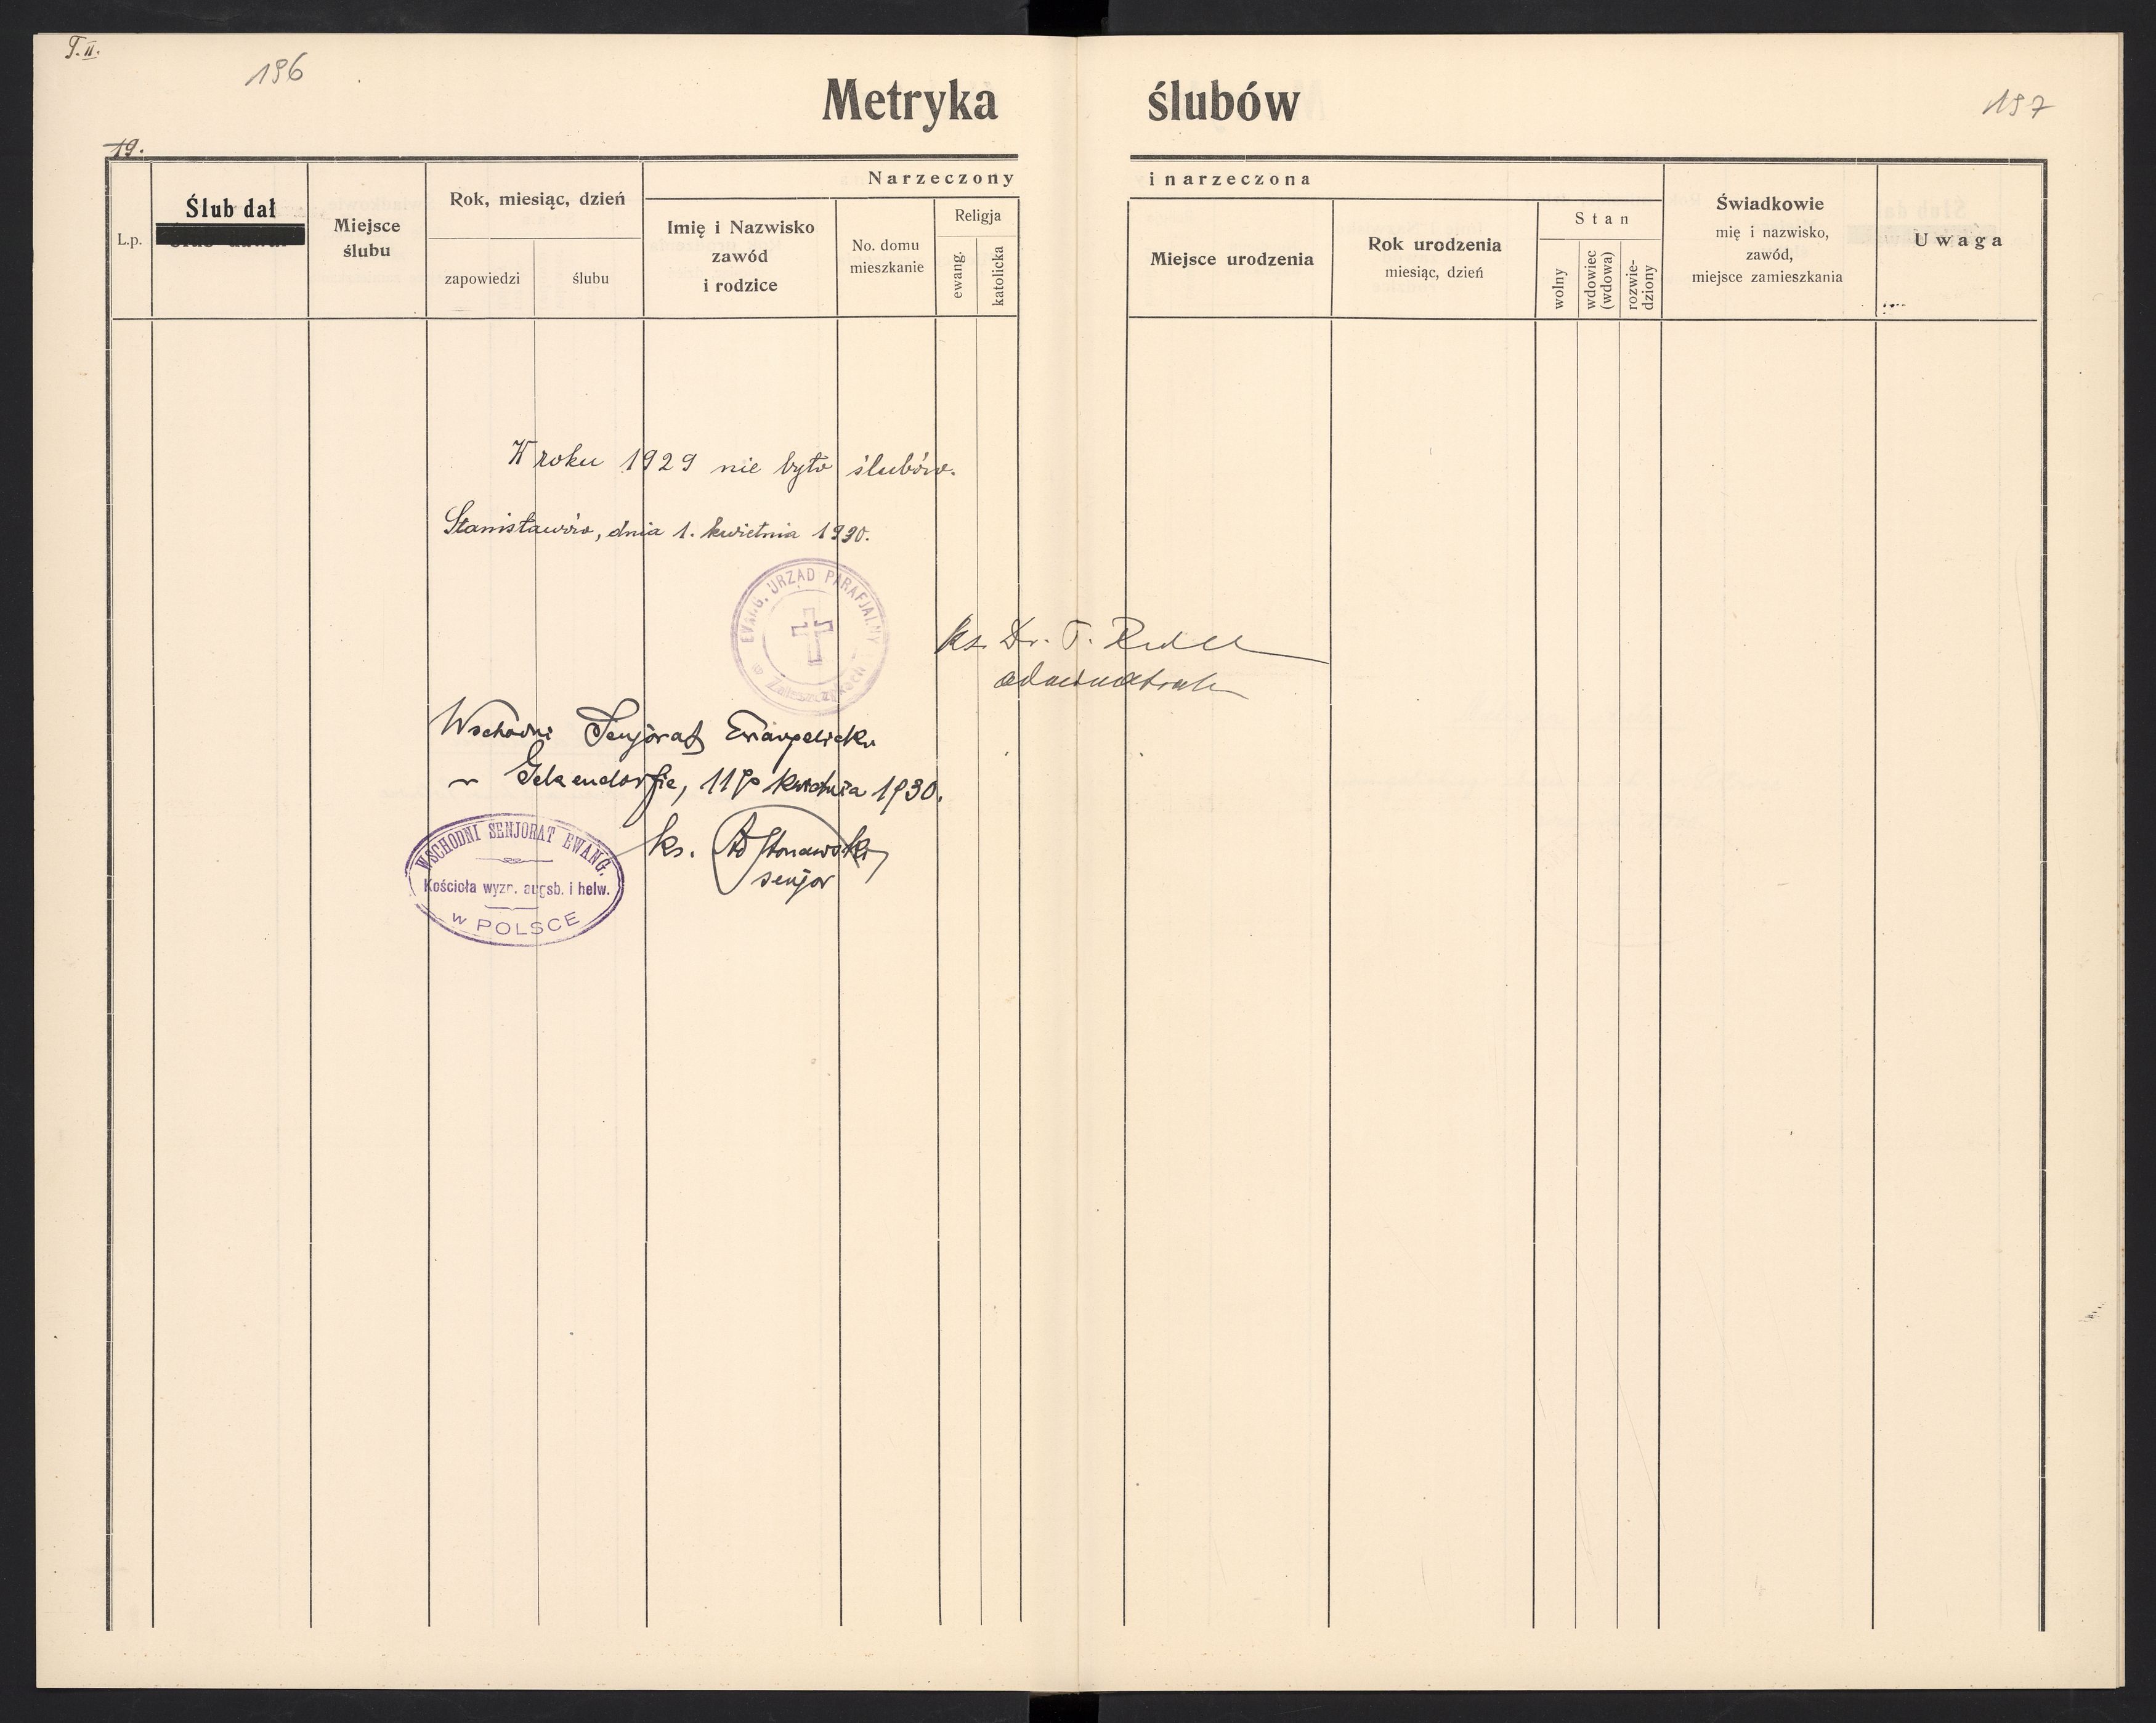 T. II.
196
197
Metryka ślubów
19.
L.p.
Ślub dał
Miejsce
ślubu
Rok, miesiąc, dzień
zapowiedzi
ślubu
Narzeczony i narzeczona
Imię i Nazwisko
zawód
i rodzice
No. domu
mieszkanie
Religja
ewang.
katolicka
Miejsce urodzenia
Rok urodzenia
miesiąc, dzień
Stan
wolny
wdowiec
(wdowa)
rozwie-
dziony
Świadkowie
mię i nazwisko,
zawód,
miejsce zamieszkania
Uwaga
W roku 1929 nie było ślubów.
Stanisławów, dnia 1. kwietnia 1930.
EVANG. URZĄD PARAFJALNY
w Zaleszczykach
ks. Dr. T.
Wschodni Senjorat Ewangelicki
w Gelsendorfie, 11go kwietnia 1930.
WSCHODNI SENJORAT EWANG.
Kościoła wyzn. augsb. i helw.
w POLSCE
ks.
senjor